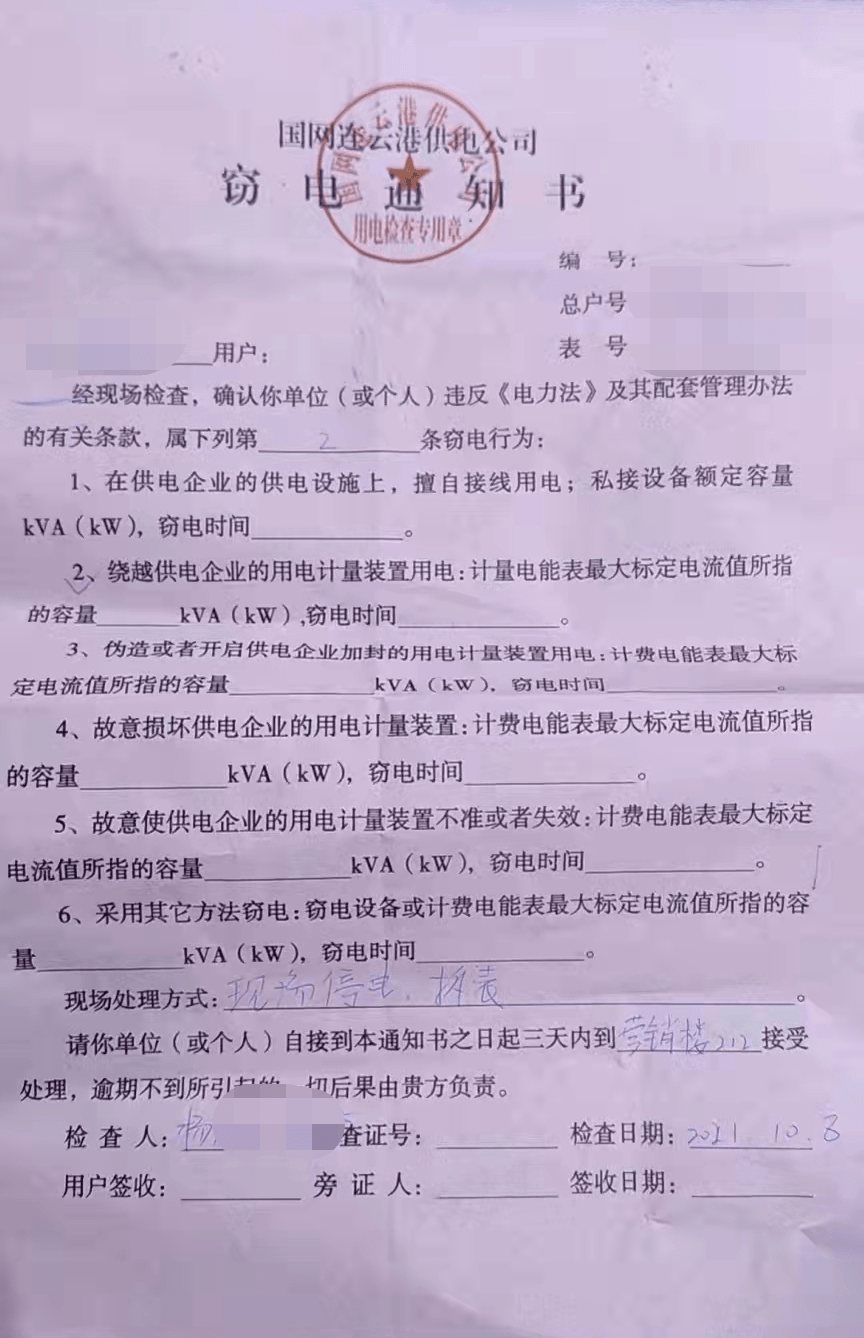 国网连云港供电公司
窃电通知书
国网连云港供电公司
用电检查专用章
编 号：
总户号
表 号
用户：
经现场检查，确认你单位（或个人）违反《电力法》及其配套管理办法
的有关条款，属下列第 2 条窃电行为：
1、在供电企业的供电设施上，擅自接线用电；私接设备额定容量
kVA（kW），窃电时间 。
2、绕越供电企业的用电计量装置用电：计量电能表最大标定电流值所指
的容量 kVA（kW），窃电时间 。
3、伪造或者开启供电企业加封的用电计量装置用电：计费电能表最大标
定电流值所指的容量 kVA（kW），窃电时间 。
4、故意损坏供电企业的用电计量装置：计费电能表最大标定电流值所指
的容量 kVA（kW），窃电时间 。
5、故意使供电企业的用电计量装置不准或者失效：计费电能表最大标定
电流值所指的容量 kVA（kW），窃电时间 。
6、采用其它方法窃电：窃电设备或计费电能表最大标定电流值所指的容
量 kVA（kW），窃电时间 。
现场处理方式：现场停电、拆表 。
请你单位（或个人）自接到本通知书之日起三天内到营销楼212接受
处理，逾期不到所引起的一切后果由贵方负责。
检 查 人：杨 查证号： 检查日期：2021.10.8
用户签收： 旁 证 人： 签收日期：